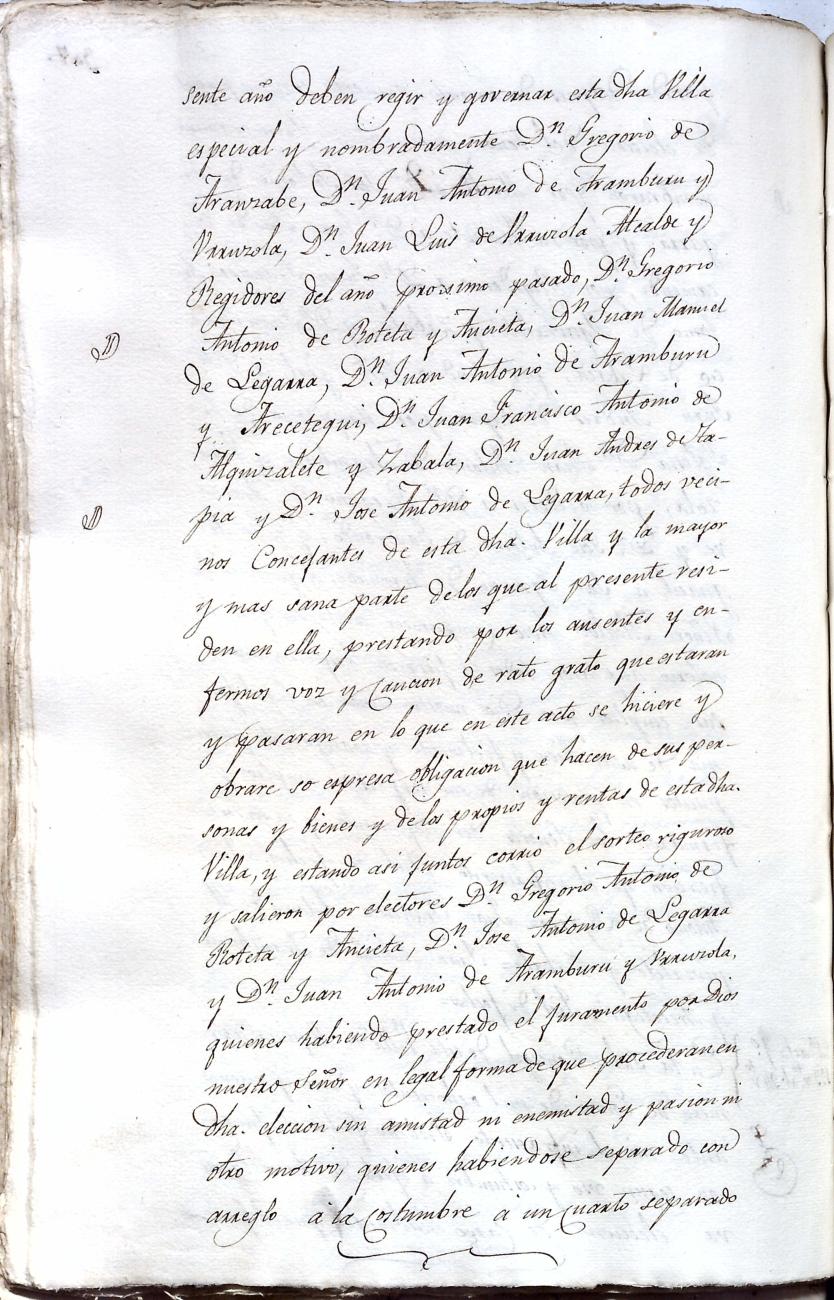 sente año deben regir y governar esta dha Villa
especial y nombradamente Dn. Gregorio de
Aranzabe, Dn. Juan Antonio de Aramburu y
Urruzola, Dn. Juan Luis de Urruzola Alcalde y
Regidores del año proximo pasado, Dn. Gregorio
Antonio de Roteta y Ancieta, Dn. Juan Manuel
de Legarra, Dn. Juan Antonio de Aramburu
y Arecetegui, Dn. Juan Francisco Antonio de
Alquizalete y Zabala, Dn. Juan Andres de Ta-
pia y Dn. Jose Antonio de Legarra, todos veci-
nos Concejantes de esta dha. Villa y la mayor
y mas sana parte de los que al presente resi-
den en ella, prestando por los ausentes y en-
fermos voz y caucion de rato grato que estaran
y pasaran en lo que en este acto se hiciere y
obrare so espresa obligacion que hacen de sus per-
sonas y bienes y de los propios y rentas de esta dha.
Villa, y estando asi juntos corrio el sorteo riguroso
y salieron por electores Dn. Gregorio Antonio de
Roteta y Ancieta, Dn. Jose Antonio de Legarra
y Dn. Juan Antonio de Aramburu y Urruzola,
quienes habiendo prestado el juramento por Dios
nuestro Señor en legal forma de que procederan en
dha. eleccion sin amistad ni enemistad y pasion ni
otro motivo, quienes habiendose separado con
arreglo a la costumbre a un cuarto separado